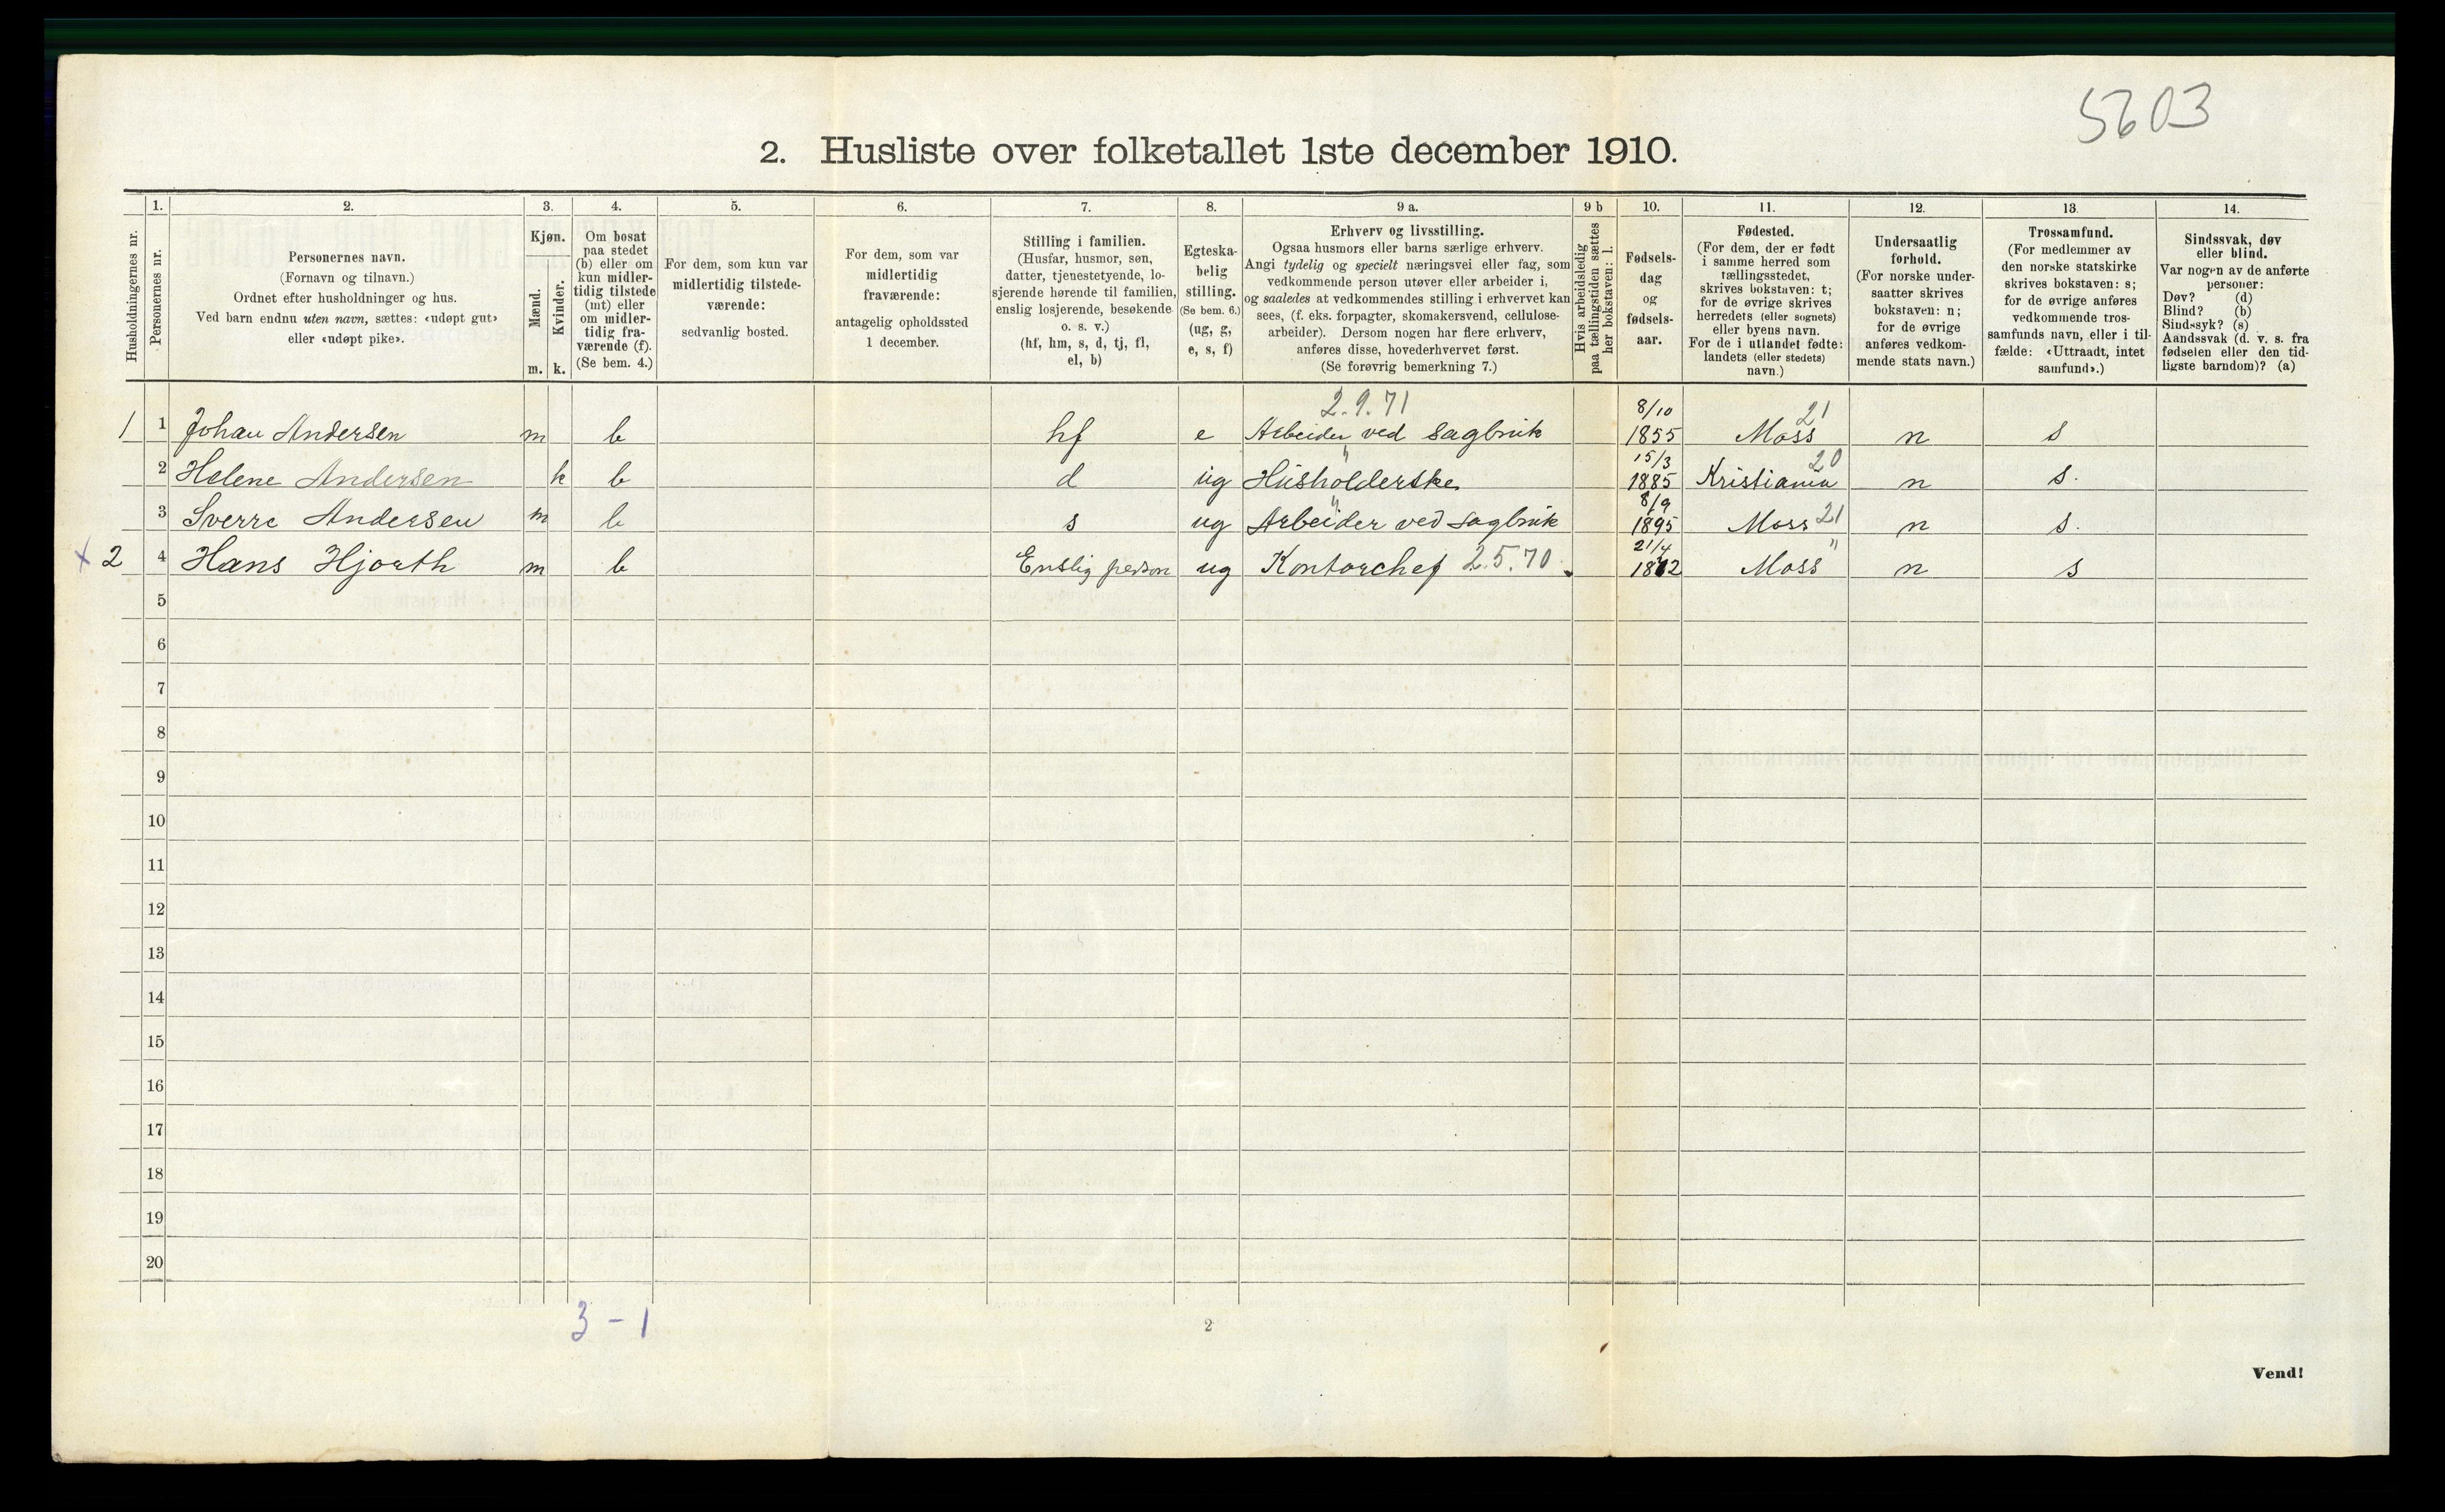 5603
2. Husliste over folketallet 1ste december 1910.
Husholdningernes nr.
1.
Personernes nr.
2.
Personernes navn.
(Fornavn og tilnavn.)
Ordnet efter husholdninger og hus.
Ved barn endnu uten navn, sættes: «udøpt gut»
eller «udøpt pike».
3.
Kjøn.
Mænd.
Kvinder.
m. k.
4.
Om bosat
paa stedet
(b) eller om
kun midler-
tidig tilstede
(mt) eller
om midler-
tidig fra-
værende (f).
(Se bem. 4.)
5.
For dem, som kun var
midlertidig tilstede-
værende:
sedvanlig bosted.
6.
For dem, som var
midlertidig
fraværende:
antagelig opholdssted
1 december.
7.
Stilling i familien.
(Husfar, husmor, søn,
datter, tjenestetyende, lo-
sjerende hørende til familien,
enslig losjerende, besøkende
o. s. v.)
(hf, hm, s, d, tj, fl,
el, b)
8.
Egteska-
belig
stilling.
(Se bem. 6.)
(ug, g,
e, s, f)
9 a.
Erhverv og livsstilling.
Ogsaa husmors eller barns særlige erhverv.
Angi tydelig og specielt næringsvei eller fag, som
vedkommende person utøver eller arbeider i,
og saaledes at vedkommendes stilling i erhvervet kan
sees, (f. eks. forpagter, skomakersvend, cellulose-
arbeider). Dersom nogen har flere erhverv,
anføres disse, hovederhvervet først.
(Se forøvrig bemerkning 7.)
9 b
Hvis arbeidsledig
paa tællingstiden sættes
her bokstaven: l.
10.
Fødsels-
dag
og
fødsels-
aar.
11.
Fødested.
(For dem, der er født
i samme herred som
tællingsstedet,
skrives bokstaven: t;
for de øvrige skrives
herredets (eller sognets)
eller byens navn.
For de i utlandet fødte:
landets (eller stedets)
navn.)
12.
Undersaatlig
forhold.
(For norske under-
saatter skrives
bokstaven: n;
for de øvrige
anføres vedkom-
mende stats navn.)
13.
Trossamfund.
(For medlemmer av
den norske statskirke
skrives bokstaven: s;
for de øvrige anføres
vedkommende tros-
samfunds navn, eller i til-
fælde: «Uttraadt, intet
samfund».)
14.
Sindssvak, døv
eller blind.
Var nogen av de anførte
personer:
Døv? (d)
Blind? (b)
Sindssyk? (s)
Aandssvak (d. v. s. fra
fødselen eller den tid-
ligste barndom)? (a)
2.9.71 8/10 21
1 1 Johan Andersen m b hf e Arbeider ved Sagbruk 1855 Moss n s
" 15/3 20
2 Helene Andersen k b d ug Husholderske 1885 Kristiania n s.
" 8/9
3 Sverre Andersen m b s ug Arbeider ved Sagbruk 1895 Moss 21 n s.
21/4 "
x 2 4 Hans Hjorth m b Enslig person ug Kontorchef 2.5.70. Moss n s
5
6
7
8
9
10
11
12
13
14
15
16
17
18
19
20
3 - 1
2
Vend!